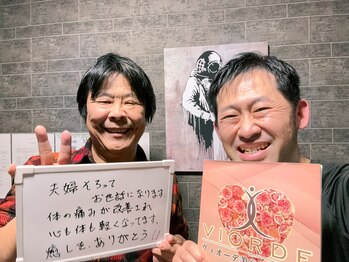 夫婦そろって
お世話になります。
体の痛みが改善され
心も体も軽くなってます。
癒しを、ありがとう!!
VIORDE
ヴィオーデ